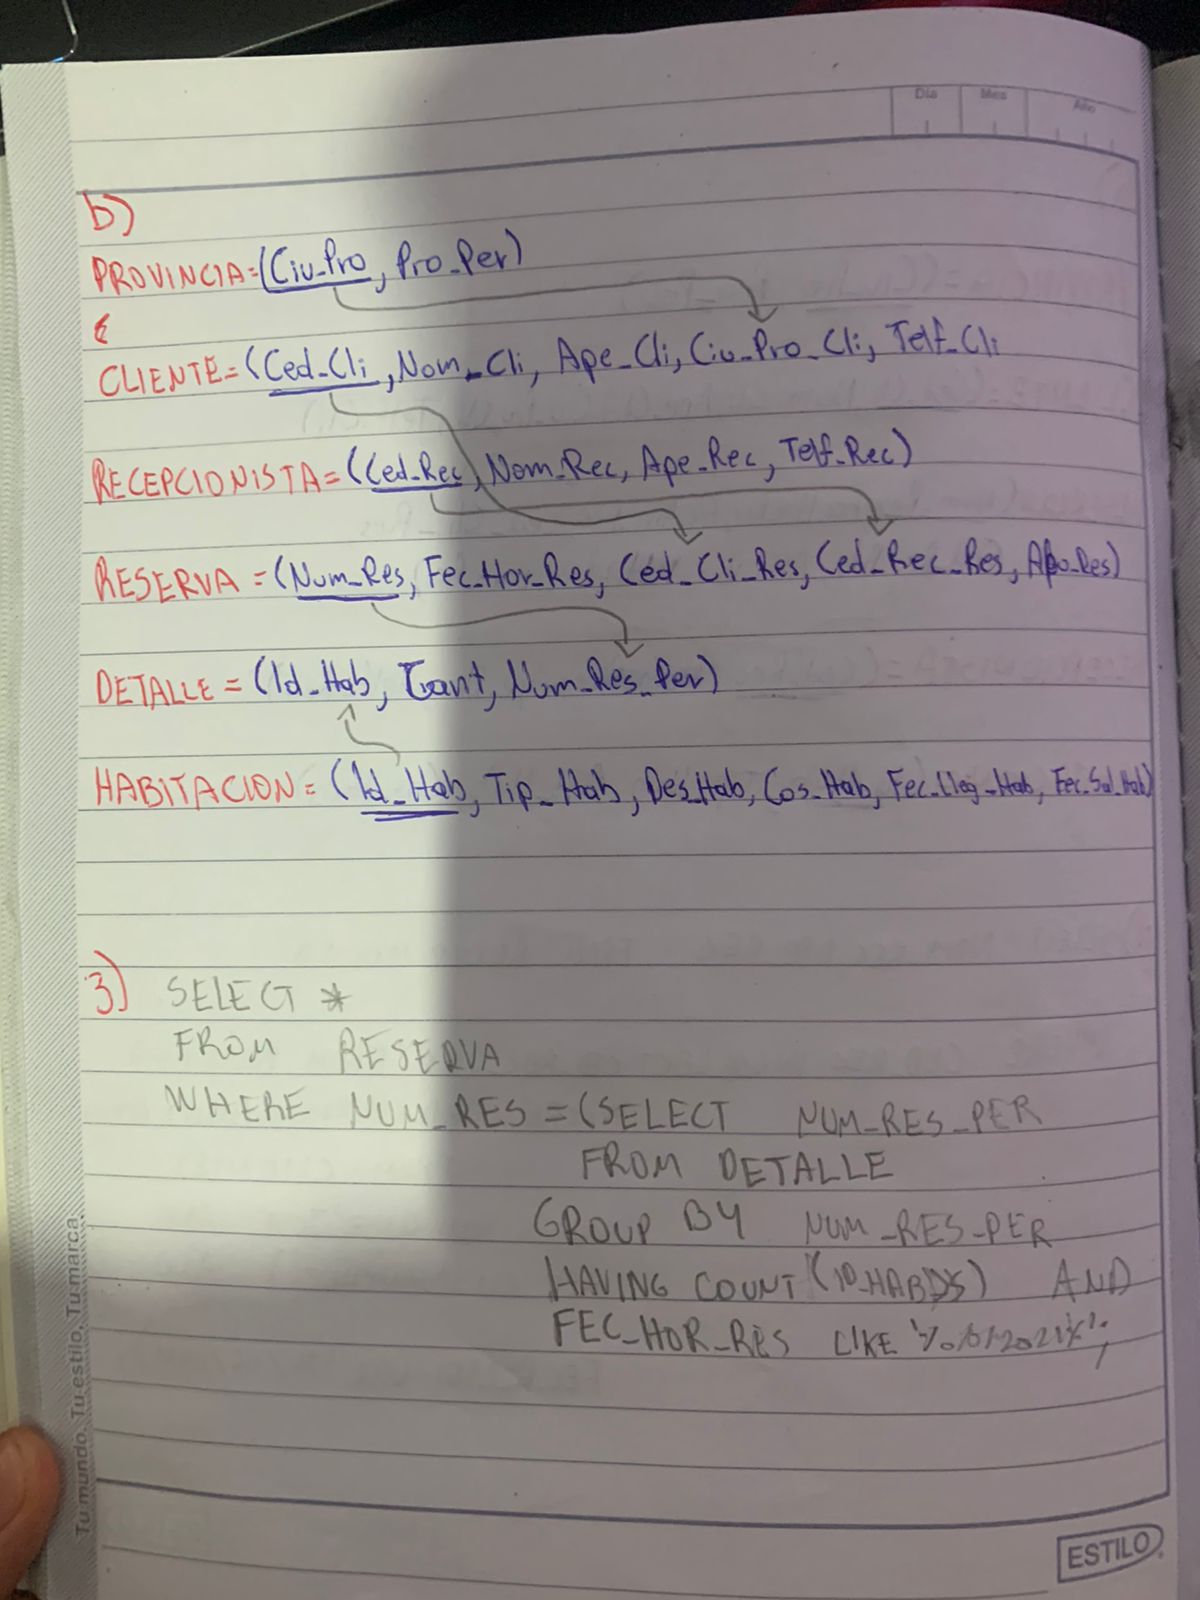 Día Mes Año
b)
PROVINCIA=(Ciu_Pro, Pro_Per)
CLIENTE=(Ced_Cli, Nom_Cli, Ape_Cli, Ciu_Pro_Cli, Telf_Cli
RECEPCIONISTA=(Ced_Rec, Nom_Rec, Ape_Rec, Telf_Rec)
RESERVA=(Num_Res, Fec_Hor_Res, Ced_Cli_Res, Ced_Rec_Res, Abo_Res)
DETALLE=(Id_Hab, Cant, Num_Res_Per)
HABITACION=(Id_Hab, Tip_Hab, Des_Hab, Cos_Hab, Fec_Lleg_Hab, Fec_Sal_Hab)
3) SELECT *
FROM RESERVA
WHERE NUM_RES=(SELECT NUM_RES_PER
FROM DETALLE
GROUP BY NUM_RES_PER
HAVING COUNT AND
FEC_HOR_RES LIKE
Tu mundo. Tu estilo. Tu marca.
ESTILO